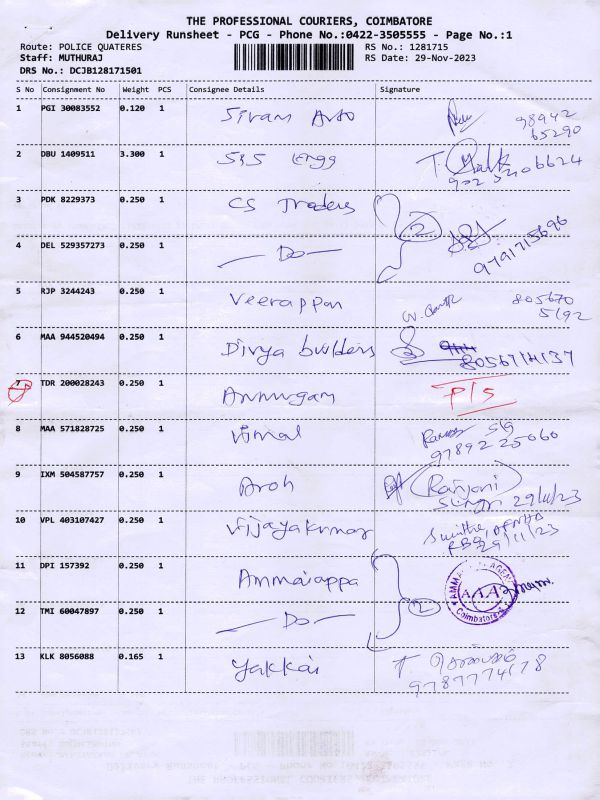 THE PROFESSIONAL COURIERS, COIMBATORE
Delivery Runsheet - PCG - Phone No.:0422-3505555 - Page No.:1
Route: POLICE QUATERES RS No.: 1281715
Staff: MUTHURAJ RS Date: 29-Nov-2023
DRS No.: DCJB128171501
S No Consignment No Weight PCS Consignee Details Signature
1 PGI 30083552 0.120 1 Sivam Auto 98942
65290
2 DBU 1409511 3.300 1 SRS Engg
3 PDK 8229373 0.250 1 CS Traders 2
9791715696
4 DEL 529357273 0.250 1 — Do —
5 RJP 3244243 0.250 1 Veerappan 805670
5192
6 MAA 944520494 0.250 1 Divya builders
7 TDR 200028243 0.250 1 Arumugam P/S
8 MAA 571828725 0.250 1 Vimal
97892 25060
9 IXM 504587757 0.250 1 Aroh Ranjani
29/11/23
10 VPL 403107427 0.250 1 Vijayakumar
29/11/23
11 DPI 157392 0.250 1 Ammaiappa
Coimbatore
12 TMI 60047897 0.250 1 — Do — 2
13 KLK 8056088 0.165 1 Yakkai
9787774178